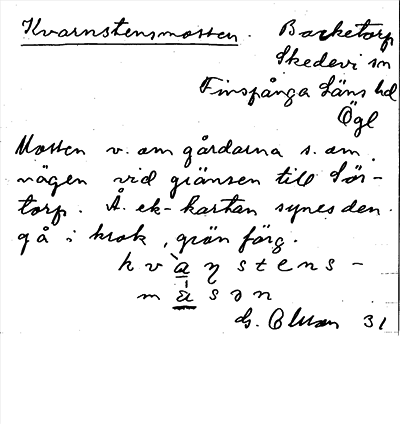 Kvarnstensmossen. Backetorp
Skedevi sn
Finspånga Läns hd
Ögl
Mossen v. om gårdarna s. om
vägen vid gränsen till Sör-
torp. Å. ek-kartan synes den
gå i krok, grön färg.
kvaɳstens-
måsən
G. 31